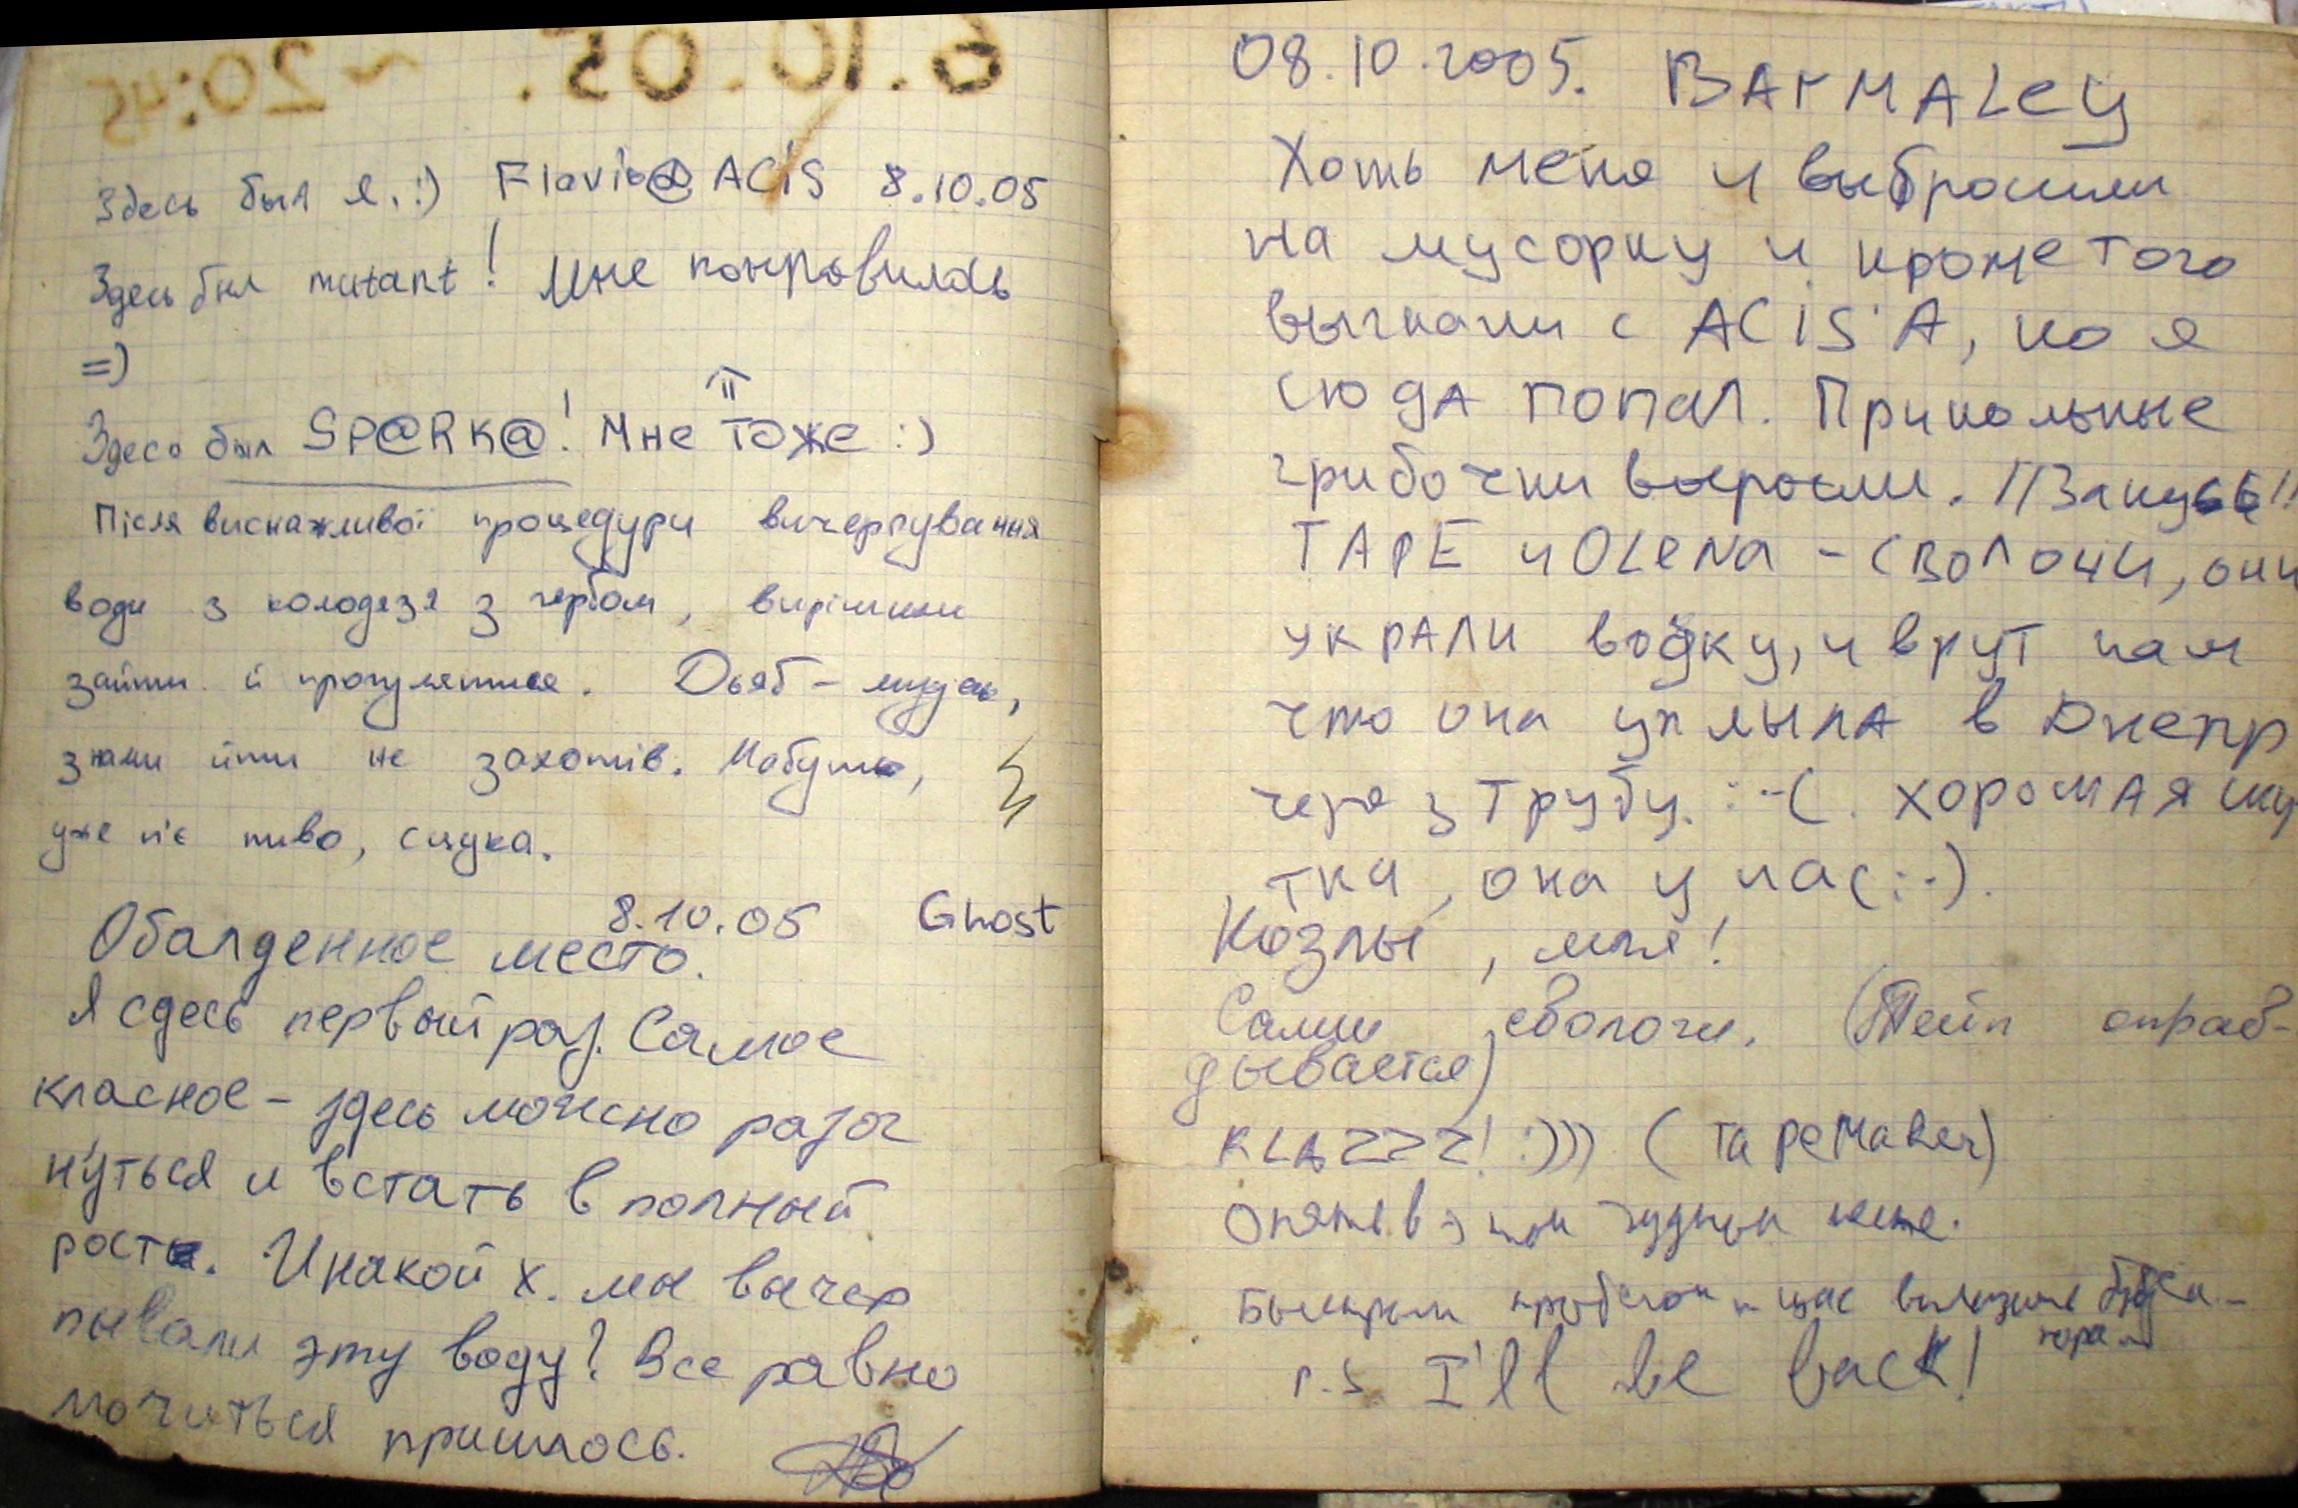 6.10.05. ~20:45
Здесь был я. :) Flavio@ACiS 8.10.05
Здесь был mutant! Мне понравилось
=)
Здесь был SP@RK@! Мне тоже :)
Після виснажливої процедури вичерпування
води з колодязя з гербом, вирішили
зайти й прогулятися. Дьяб - мудак,
з нами йти не захотів. Мабуть,
уже п'є пиво, сцука.
8.10.05 Ghost
Обалденное место.
Я сдесь первый раз. Самое
класное - здесь можно разог
нуться и встать в полный
рост. Инакой х. мы вычер
пывали эту воду? Все равно
мочиться пришлось.
08.10.2005. BArMALey
Хоть меня и выбросили
на мусорку и кроме того
выгнали с ACiS'A, но я
сюда попал. Прикольные
грибочки выросли.
TAPE и OLENA - сволочи, они
украли водку, и врут нам
что она уплыла в Днепр
через трубу. :-( . хоромая шу
тка, она у нас :-).
Козлы, мля!
Сами сволочи. (Тейп оправ-
дывается)
KLAZZZ! :))) (TapeMaker)
Опять в этом чудном месте.
Быстрым пробегом и щас вылазить будем
P.S I'll be back!